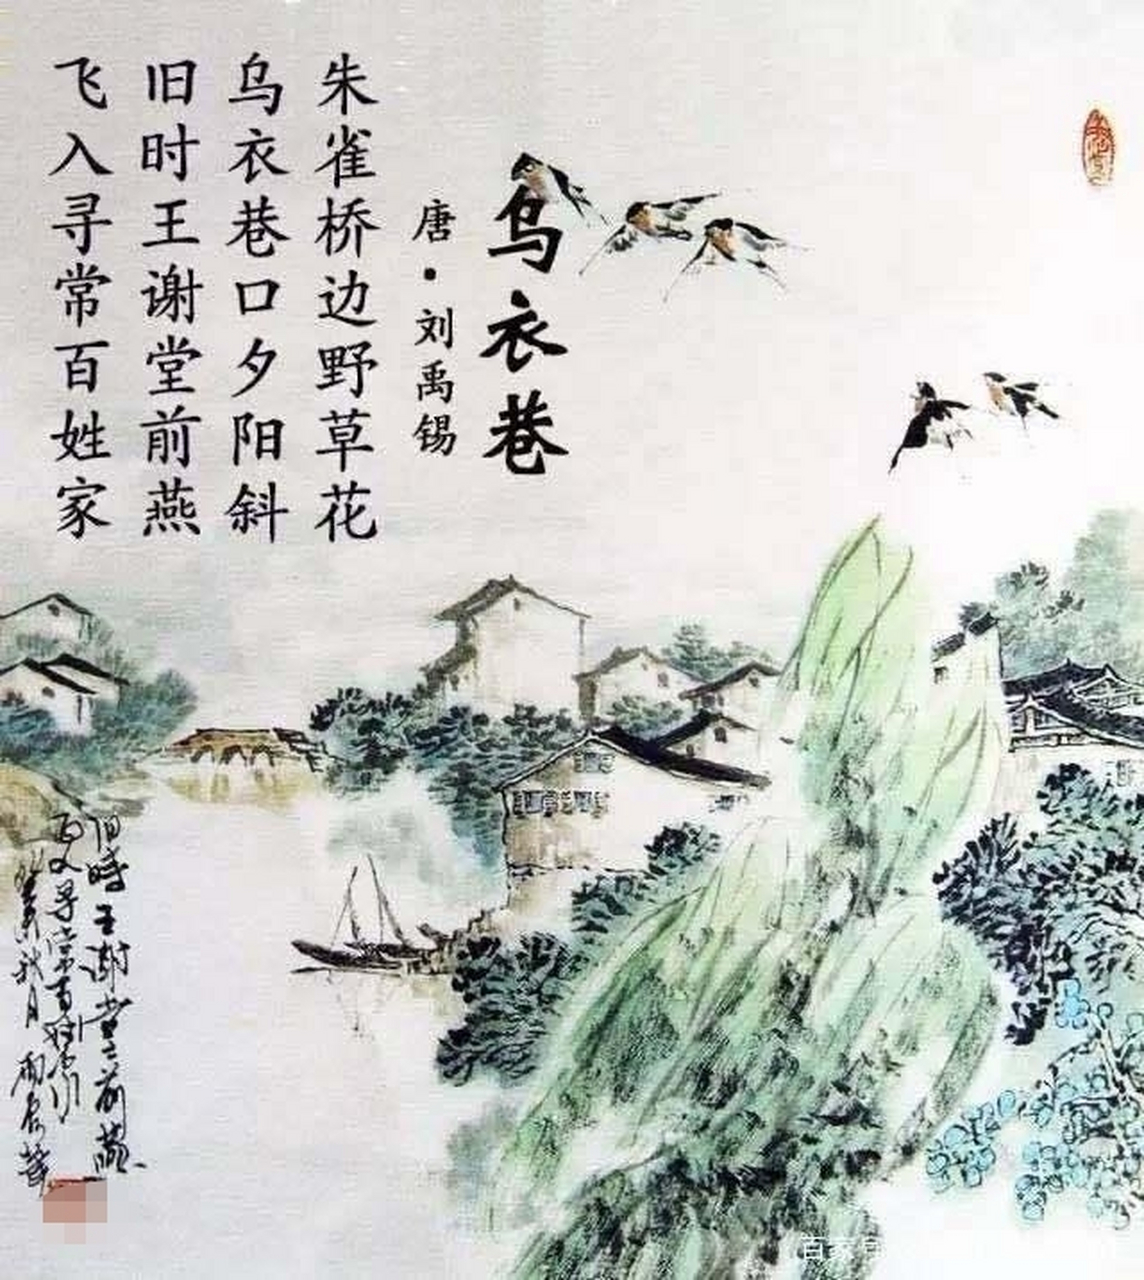 乌衣巷
唐·刘禹锡
朱雀桥边野草花
乌衣巷口夕阳斜
旧时王谢堂前燕
飞入寻常百姓家
旧時王谢堂前燕
百家号